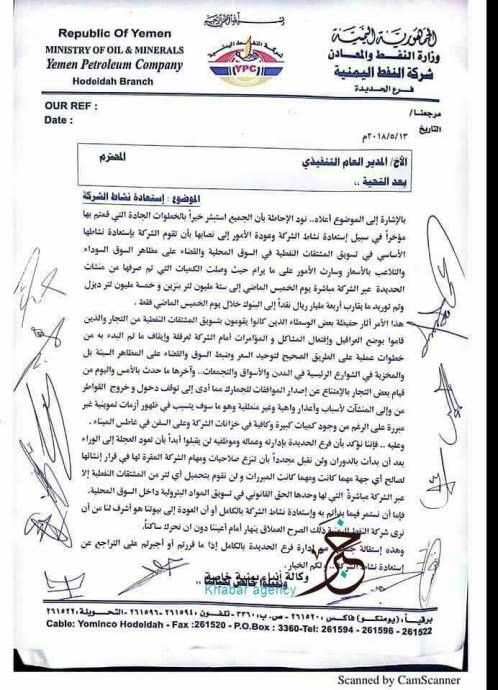 Republic Of Yemen
MINISTRY OF OIL & MINERALS
Yemen Petroleum Company
Hodeidah Branch
الجمهورية اليمنية
وزارة النفط والمعادن
شركة النفط اليمنية
فرع الحديدة
شركة النفط اليمنية
YPC
OUR REF :
Date :
مرجعنا /
التاريخ
٢٠١٨/٥/١٣م
الأخ/ المدير العام التنفيذي المحترم
بعد التحية ،،
الموضوع : إستعادة نشاط الشركة
بالإشارة إلى الموضوع أعلاه.. نود الإحاطة بأن الجميع استبشر خيراً بالخطوات الجادة التي قمتم بها
مؤخراً في سبيل إستعادة نشاط الشركة وعودة الأمور إلى نصابها بأن تقوم الشركة بإستعادة نشاطها
الأساسي في تسويق المشتقات النفطية في السوق المحلية والقضاء على مظاهر السوق السوداء
والتلاعب بالأسعار وسارت الأمور على ما يرام حيث وصلت الكميات التي تم صرفها من منشآت
الحديدة عبر الشركة مباشرة يوم الخميس الماضي إلى ستة مليون لتر بنزين و خمسة مليون لتر ديزل
وتم توريد ما يقارب أربعة مليار ريال نقداً إلى البنوك خلال يوم الخميس الماضي فقط .
هذا الأمر أثار حفيظة بعض الوسطاء الذين كانوا يقومون بتسويق المشتقات النفطية من التجار والذين
قاموا بوضع العراقيل وإفتعال المشاكل و المؤامرات أمام الشركة لعرقلة وإيقاف ما تم البدء به من
خطوات عملية على الطريق الصحيح لتوحيد السعر وضبط السوق والقضاء على المظاهر السيئة بل
والمخزية في الشوارع الرئيسية في المدن والأسواق والتجمعات.. وآخرها ما حدث بالأمس واليوم من
قيام بعض التجار بالإمتناع عن إصدار الموافقات للجمارك مما أدى إلى توقف دخول و خروج القواطر
من وإلى المنشآت لأسباب وأعذار واهية وغير منطقية وهو ما سوف يتسبب في ظهور أزمات تموينية غير
مبررة على الرغم من وجود كميات كبيرة وكافية في خزانات الشركة وعلى السفن في غاطس الميناء .
وعليه .. فإننا نؤكد بأن فرع الحديدة بإدارته وعماله وموظفيه لن يقبلوا أبداً بأن تعود العجلة إلى الوراء
بعد أن بدأت بالدوران ولن نقبل مجدداً بأن تنزع صلاحيات ومهام الشركة المقرة لها في قرار إنشائها
لصالح أي جهة مهما كانت ومهما كانت المبررات و لن نقوم بتحميل أي لتر من المشتقات النفطية إلا
عبر الشركة مباشرة التي لها وحدها الحق القانوني في تسويق المواد البترولية داخل السوق المحلية.
فإما أن نستمر فيما بإستعادة نشاط الشركة بالكامل أو أن العودة إلى بيوتنا هو أشرف لنا من أن
نرى شركة النفط اليمنية ذلك الصرح العملاق ينهار أمام أعيننا دون ان نحرك ساكناً.
وهذه إستقالة إدارة فرع الحديدة بالكامل إذا ما قررتم أو أجبرتم على التراجع عن
إستعادة نشاط الشركة.. ولكم الخيار.
خبر
وكالة أنباء يمنية خاصة
Khabar agency
برقياً : (يومنكو) فاكس : ٢٦١٥٢٠ - ص.ب : ٣٣٦٠ - تلفون : ٢٦١٥٩٤ - ٢٦١٥٩٦ - التحويلة : ٢٦١٥٢٢
Cable: Yominco Hodeidah - Fax :261520 - P.O.Box : 3360-Tel: 261594 - 261596 - 261522
Scanned by CamScanner